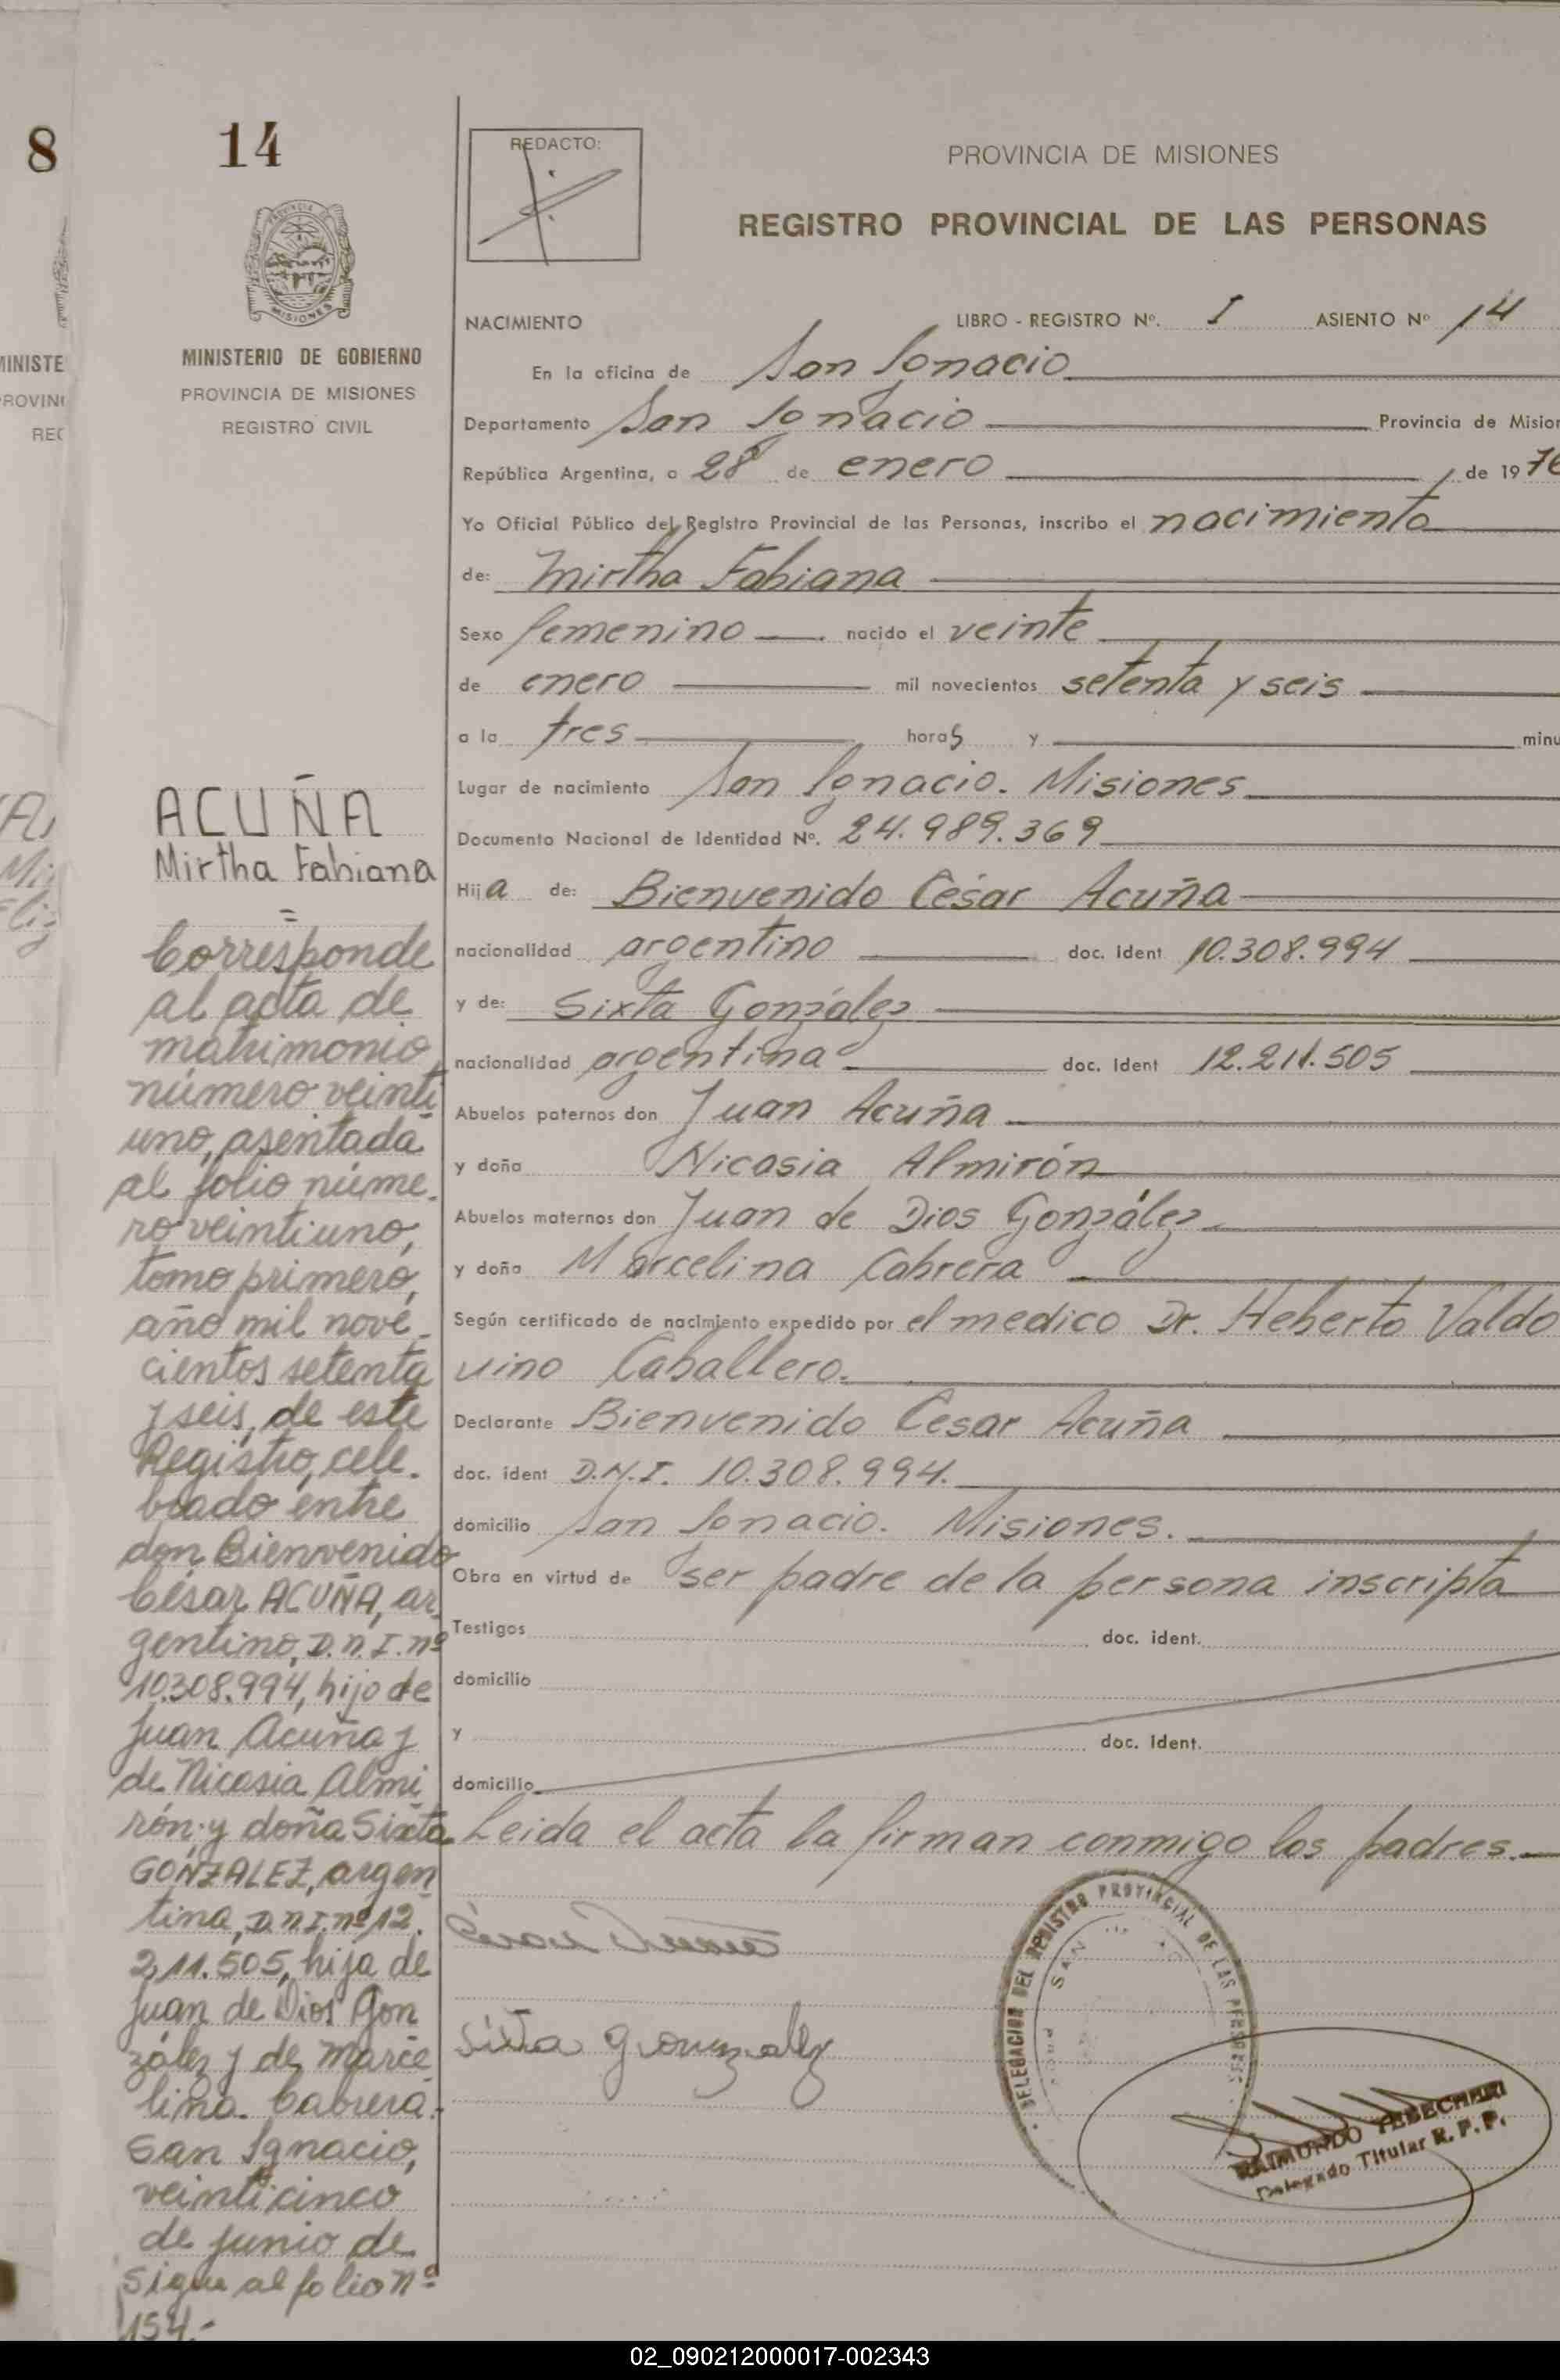 8
14
REDACTO:
PROVINCIA DE MISIONES
REGISTRO PROVINCIAL DE LAS PERSONAS
MISIONES
MINISTERIO DE GOBIERNO
PROVINCIA DE MISIONES
REGISTRO CIVIL
NACIMIENTO LIBRO - REGISTRO Nº. I ASIENTO Nº 14
En la oficina de San Ignacio
Departamento San Ignacio Provincia de Mision
República Argentina, a 28 de enero de 1976
Yo Oficial Público del Registro Provincial de las Personas, inscribo el nacimiento
de: Mirtha Fabiana
Sexo femenino nacido el veinte
de enero mil novecientos setenta y seis
a la tres horas y minu
Lugar de nacimiento San Ignacio. Misiones
Documento Nacional de Identidad Nº. 24.989.369
Hija de: Bienvenido César Acuña
nacionalidad argentino doc. ident 10.308.994
y de: Sixta González
nacionalidad argentina doc. ident 12.211.505
Abuelos paternos don Juan Acuña
y doña Nicasia Almirón
Abuelos maternos don Juan de Dios González
y doña Marcelina Cabrera
Según certificado de nacimiento expedido por el medico Dr. Heberto Valdo
vino Caballero.
Declarante Bienvenido Cesar Acuña
doc. ident D.N.I. 10.308.994.
domicilio San Ignacio. Misiones.
Obra en virtud de ser padre de la persona inscripta
Testigos doc. ident.
domicilio
y doc. ident.
domicilio
Leida el acta la firman conmigo los padres.
Sixta gonzalez
DELEGACION DEL REGISTRO PROVINCIAL DE LAS PERSONAS
SAN
RAIMUNDO YEBECHERI
Delegado Titular R. P. P.
ACUÑA
Mirtha Fabiana
=
Corresponde
al acta de
matrimonio
número veinti
uno, asentada
al folio núme-
ro veintiuno,
tomo primero,
año mil nove-
cientos setenta
y seis, de este
Registro, cele-
brado entre
don Bienvenido
César ACUÑA, ar-
gentino, D.N.I. nº
10.308.994, hijo de
Juan Acuña y
de Nicasia Almi
rón y doña Sixta
GONZALEZ, argen
tina, D.N.I. nº 12.
211.505, hija de
Juan de Dios Gon
zález y de Marce
lina Cabrera.
San Ignacio,
veinticinco
de junio de
Sigue al folio nº
154.-
02_090212000017-002343